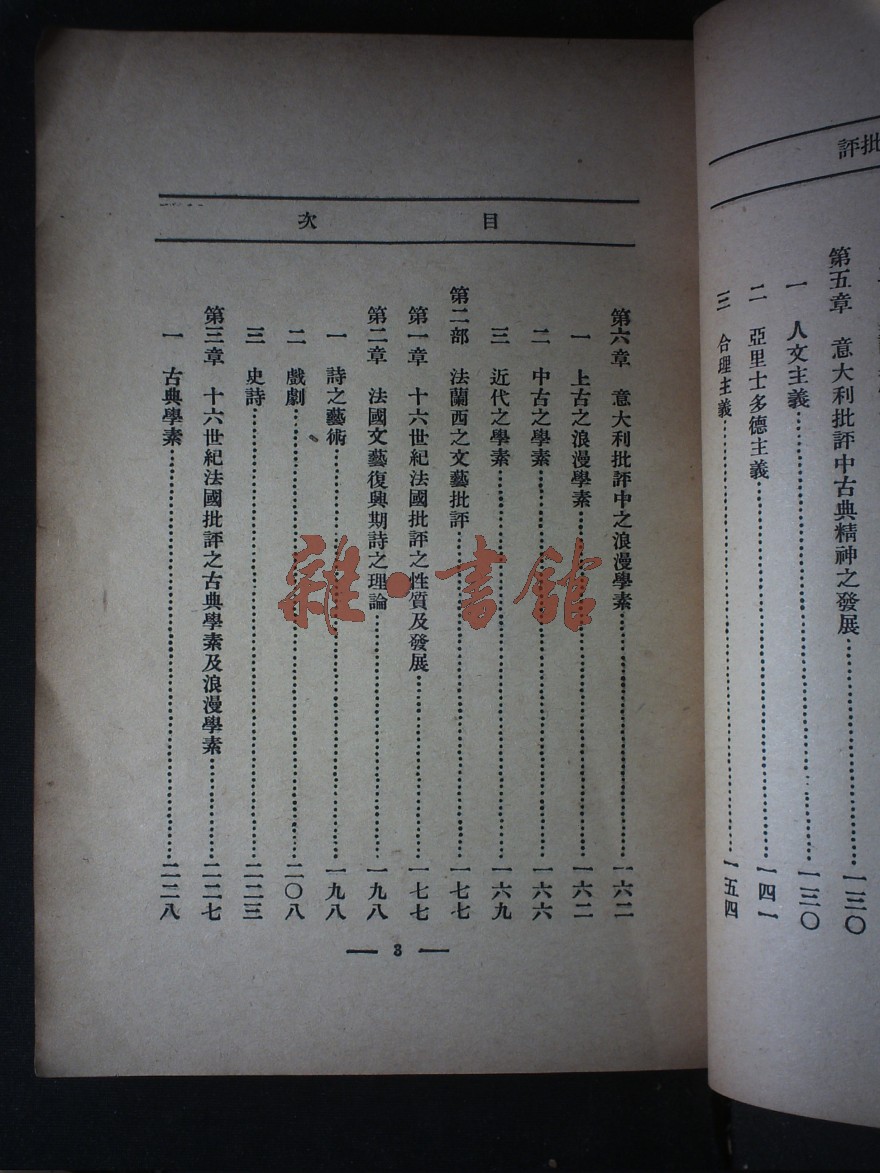 批評
第五章 意大利批評中古典精神之發展……一三〇
一 人文主義……一三〇
二 亞里士多德主義……一四一
三 合理主義……一五四
目次
第六章 意大利批評中之浪漫學素……一六二
一 上古之浪漫學素……一六二
二 中古之學素……一六六
三 近代之學素……一六九
第二部 法蘭西之文藝批評……一七七
第一章 十六世紀法國批評之性質及發展……一七七
第二章 法國文藝復興期詩之理論……一九八
一 詩之藝術……一九八
二 戲劇……二〇八
三 史詩……二二三
第三章 十六世紀法國批評之古典學素及浪漫學素……二二七
一 古典學素……二二八
— 3 —
雜·書館